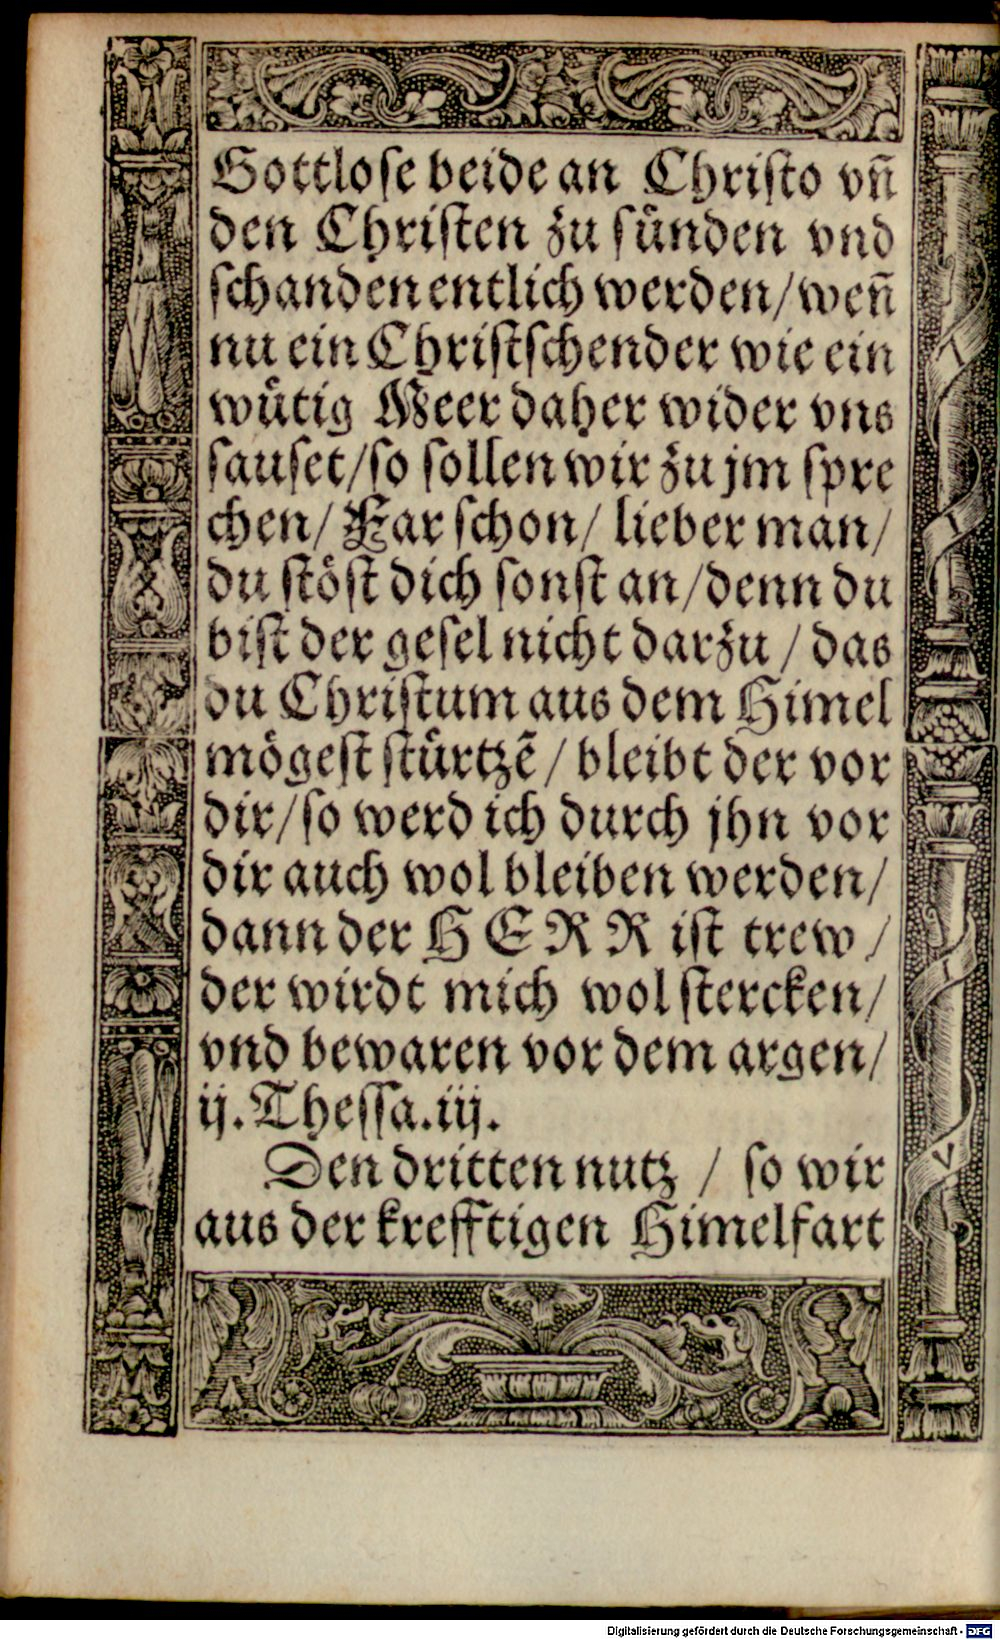 Gottlose beide an Christo vn̄
den Christen zu sünden vnd
schanden entlich werden/ wen̄
nu ein Christschender wie ein
wütig Meer daher wider vns
sauset/ so sollen wir zu jm spre
chen/ Far schon/ lieber man/
du stöst dich sonst an/ denn du
bist der gesel nicht darzu / das
du Christum aus dem Himel
mögest stürtzē / bleibt der vor
dir/ so werd ich durch jhn vor
dir auch wol bleiben werden/
dann der HERR ist trew /
der wirdt mich wol stercken/
vnd bewaren vor dem argen/
ij. Thessa. iij.
Den dritten nutz / so wir
aus der krefftigen Himelfart
Digitalisierung gefördert durch die Deutsche Forschungsgemeinschaft - DFG